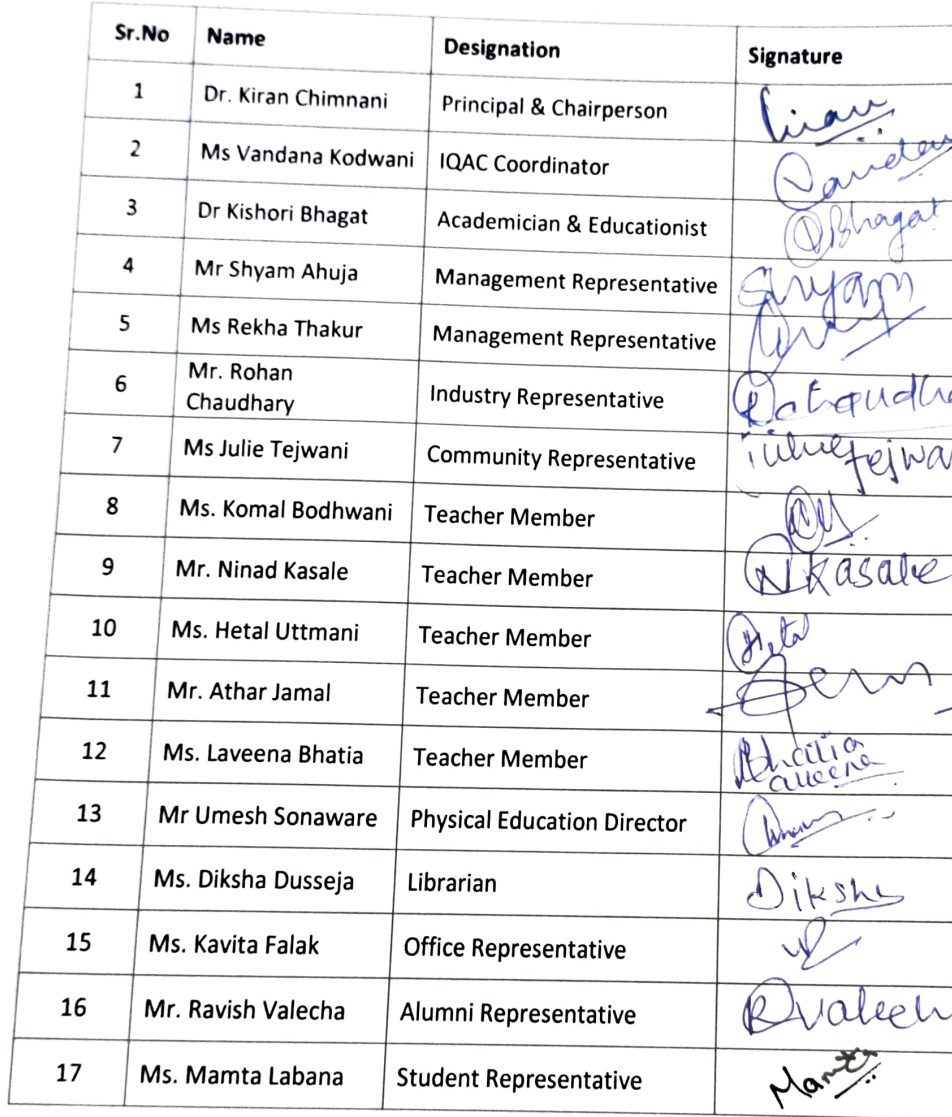 Sr.No Name Designation Signature
1 Dr. Kiran Chimnani Principal & Chairperson Kiran
2 Ms Vandana Kodwani IQAC Coordinator
3 Dr Kishori Bhagat Academician & Educationist Bhagat
4 Mr Shyam Ahuja Management Representative Shyam
5 Ms Rekha Thakur Management Representative
6 Mr. Rohan
Chaudhary Industry Representative
7 Ms Julie Tejwani Community Representative Julie Tejwa
8 Ms. Komal Bodhwani Teacher Member
9 Mr. Ninad Kasale Teacher Member NKasale
10 Ms. Hetal Uttmani Teacher Member
11 Mr. Athar Jamal Teacher Member
12 Ms. Laveena Bhatia Teacher Member Bhatia
13 Mr Umesh Sonaware Physical Education Director
14 Ms. Diksha Dusseja Librarian Diksha
15 Ms. Kavita Falak Office Representative
16 Mr. Ravish Valecha Alumni Representative RValech
17 Ms. Mamta Labana Student Representative Mamta